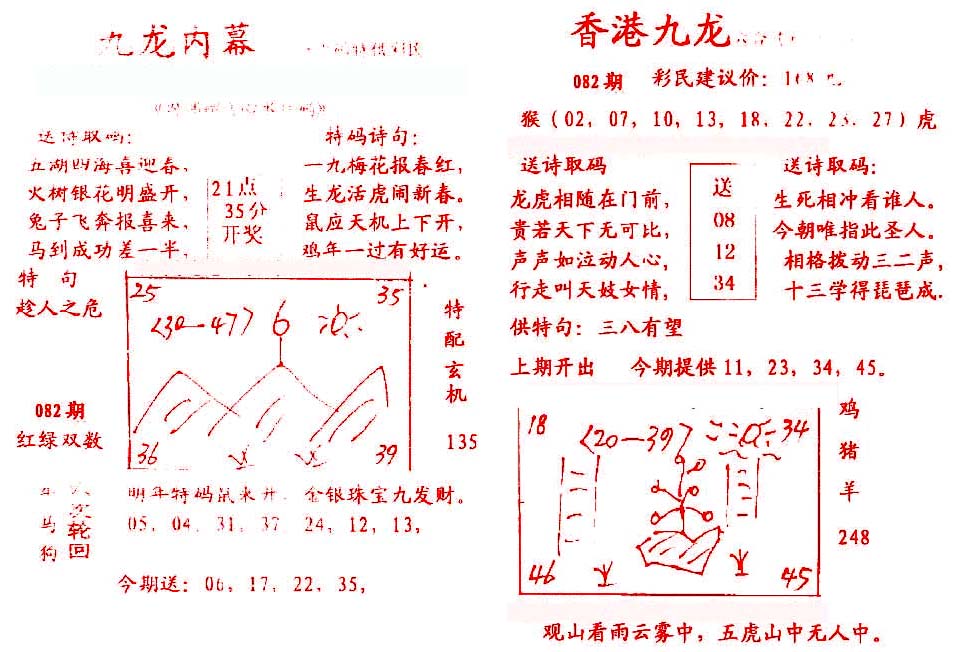 九龙内幕
送诗取码:
五湖四海喜迎春,
火树银花明盛开,
兔子飞奔报喜来,
马到成功差一半,
21点
35分
开奖
特码诗句:
一九梅花报春红,
生龙活虎闹新春。
鼠应天机上下开,
鸡年一过有好运。
特句
趁人之危
082期
红绿双数
25
35
<30—47> 6
36
39
特配玄机
135
明年特码鼠来开. 金银珠宝九发财。
马
狗
轮回
05, 04, 31, 37, 24, 12, 13,
今期送: 06, 17, 22, 35,
香港九龙
082期 彩民建议价:
猴 (02, 07, 10, 13, 18, 22, 23, 27) 虎
送诗取码
龙虎相随在门前,
贵若天下无可比,
声声如泣动人心,
行走叫天妓女情,
送
08
12
34
送诗取码:
生死相冲看谁人。
今朝唯指此圣人。
相格拨动三二声,
十三学得琵琶成.
供特句: 三八有望
上期开出 今期提供11, 23, 34, 45。
18
<20—39>
34
46
45
鸡
猪
羊
248
观山看雨云雾中, 五虎山中无人中。